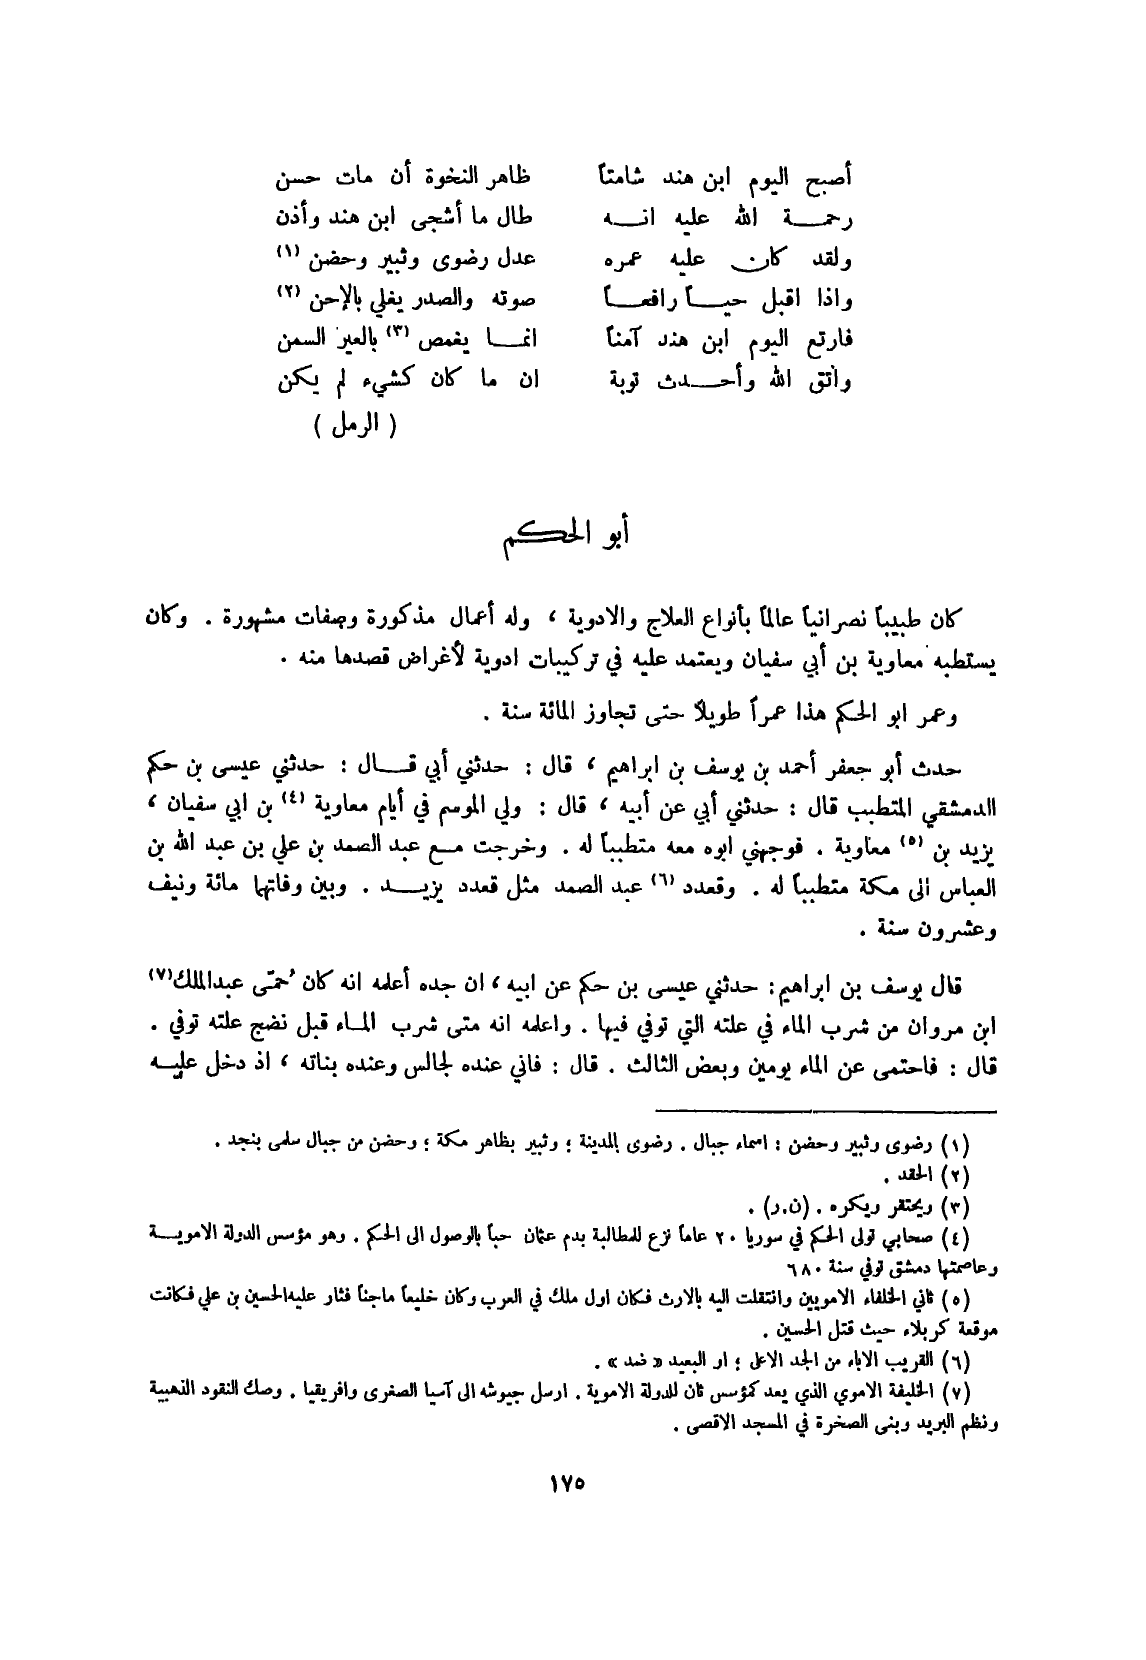 أصبح اليوم ابن هند شامتاً ظاهر النخوة أن مات حسن
رحمـــة الله عليه انـــه طال ما أشجى ابن هند وأذن
ولقد كان عليه عمره عدل رضوى وثبير وحضن (١)
واذا اقبل حيـــاً رافعـــاً صوته والصدر يغلي بالإحن (٢)
فارتع اليوم ابن هند آمناً انمـــا يغمص (٣) بالعير السمن
واتق الله وأحـــدث توبة ان ما كان كشيء لم يكن
( الرمل )
أبو الحكم
كان طبيباً نصرانياً عالماً بأنواع العلاج والادوية ، وله أعمال مذكورة وصفات مشهورة . وكان
يستطبه معاوية بن أبي سفيان ويعتمد عليه في تركيبات ادوية لأغراض قصدها منه .
وعمر ابو الحكم هذا عمراً طويلاً حتى تجاوز المائة سنة .
حدث أبو جعفر أحمد بن يوسف بن ابراهيم ، قال : حدثني أبي قـــال : حدثني عيسى بن حكم
الدمشقي المتطبب قال : حدثني أبي عن أبيه ، قال : ولي الموسم في أيام معاوية (٤) بن ابي سفيان ،
يزيد بن (٥) معاوية . فوجهني ابوه معه متطبباً له . وخرجت مـــع عبد الصمد بن علي بن عبد الله بن
العباس الى مكة متطبباً له . وقعدد (٦) عبد الصمد مثل قعدد يزيـــد . وبين وفاتها مائة ونيف
وعشرون سنة .
قال يوسف بن ابراهيم : حدثني عيسى بن حكم عن ابيه ، ان جده أعلمه انه كان حُمّى عبدالملك (٧)
ابن مروان من شرب الماء في علته التي توفي فيها . واعلمه انه متى شرب المـاء قبل نضج علته توفي .
قال : فاحتمى عن الماء يومين وبعض الثالث . قال : فاني عنده لجالس وعنده بناته ، اذ دخل عليـــه
(١) رضوى وثبير وحضن : اسماء جبال . رضوى بالمدينة ؛ وثبير بظاهر مكة ؛ وحضن من جبال سلمى بنجد .
(٢) الحقد .
(٣) ويحتقر ويكره . (ن.ر) .
(٤) صحابي تولى الحكم في سوريا ٢٠ عاماً نزع للمطالبة بدم عثمان حباً بالوصول الى الحكم . وهو مؤسس الدولة الامويـــة
وعاصمتها دمشق توفي سنة ٦٨٠
(٥) ثاني الخلفاء الامويين وانتقلت اليه بالارث فكان اول ملك في العرب وكان خليعاً ماجناً فثار عليه الحسين بن علي فكانت
موقعة كربلاء حيث قتل الحسين .
(٦) القريب الاباء من الجد الاعلى ؛ او البعيد « ضد » .
(٧) الخليفة الاموي الذي يعد كمؤسس ثان للدولة الاموية . ارسل جيوشه الى آسيا الصغرى وافريقيا . وصك النقود الذهبية
ونظم البريد وبنى الصخرة في المسجد الاقصى .
١٧٥